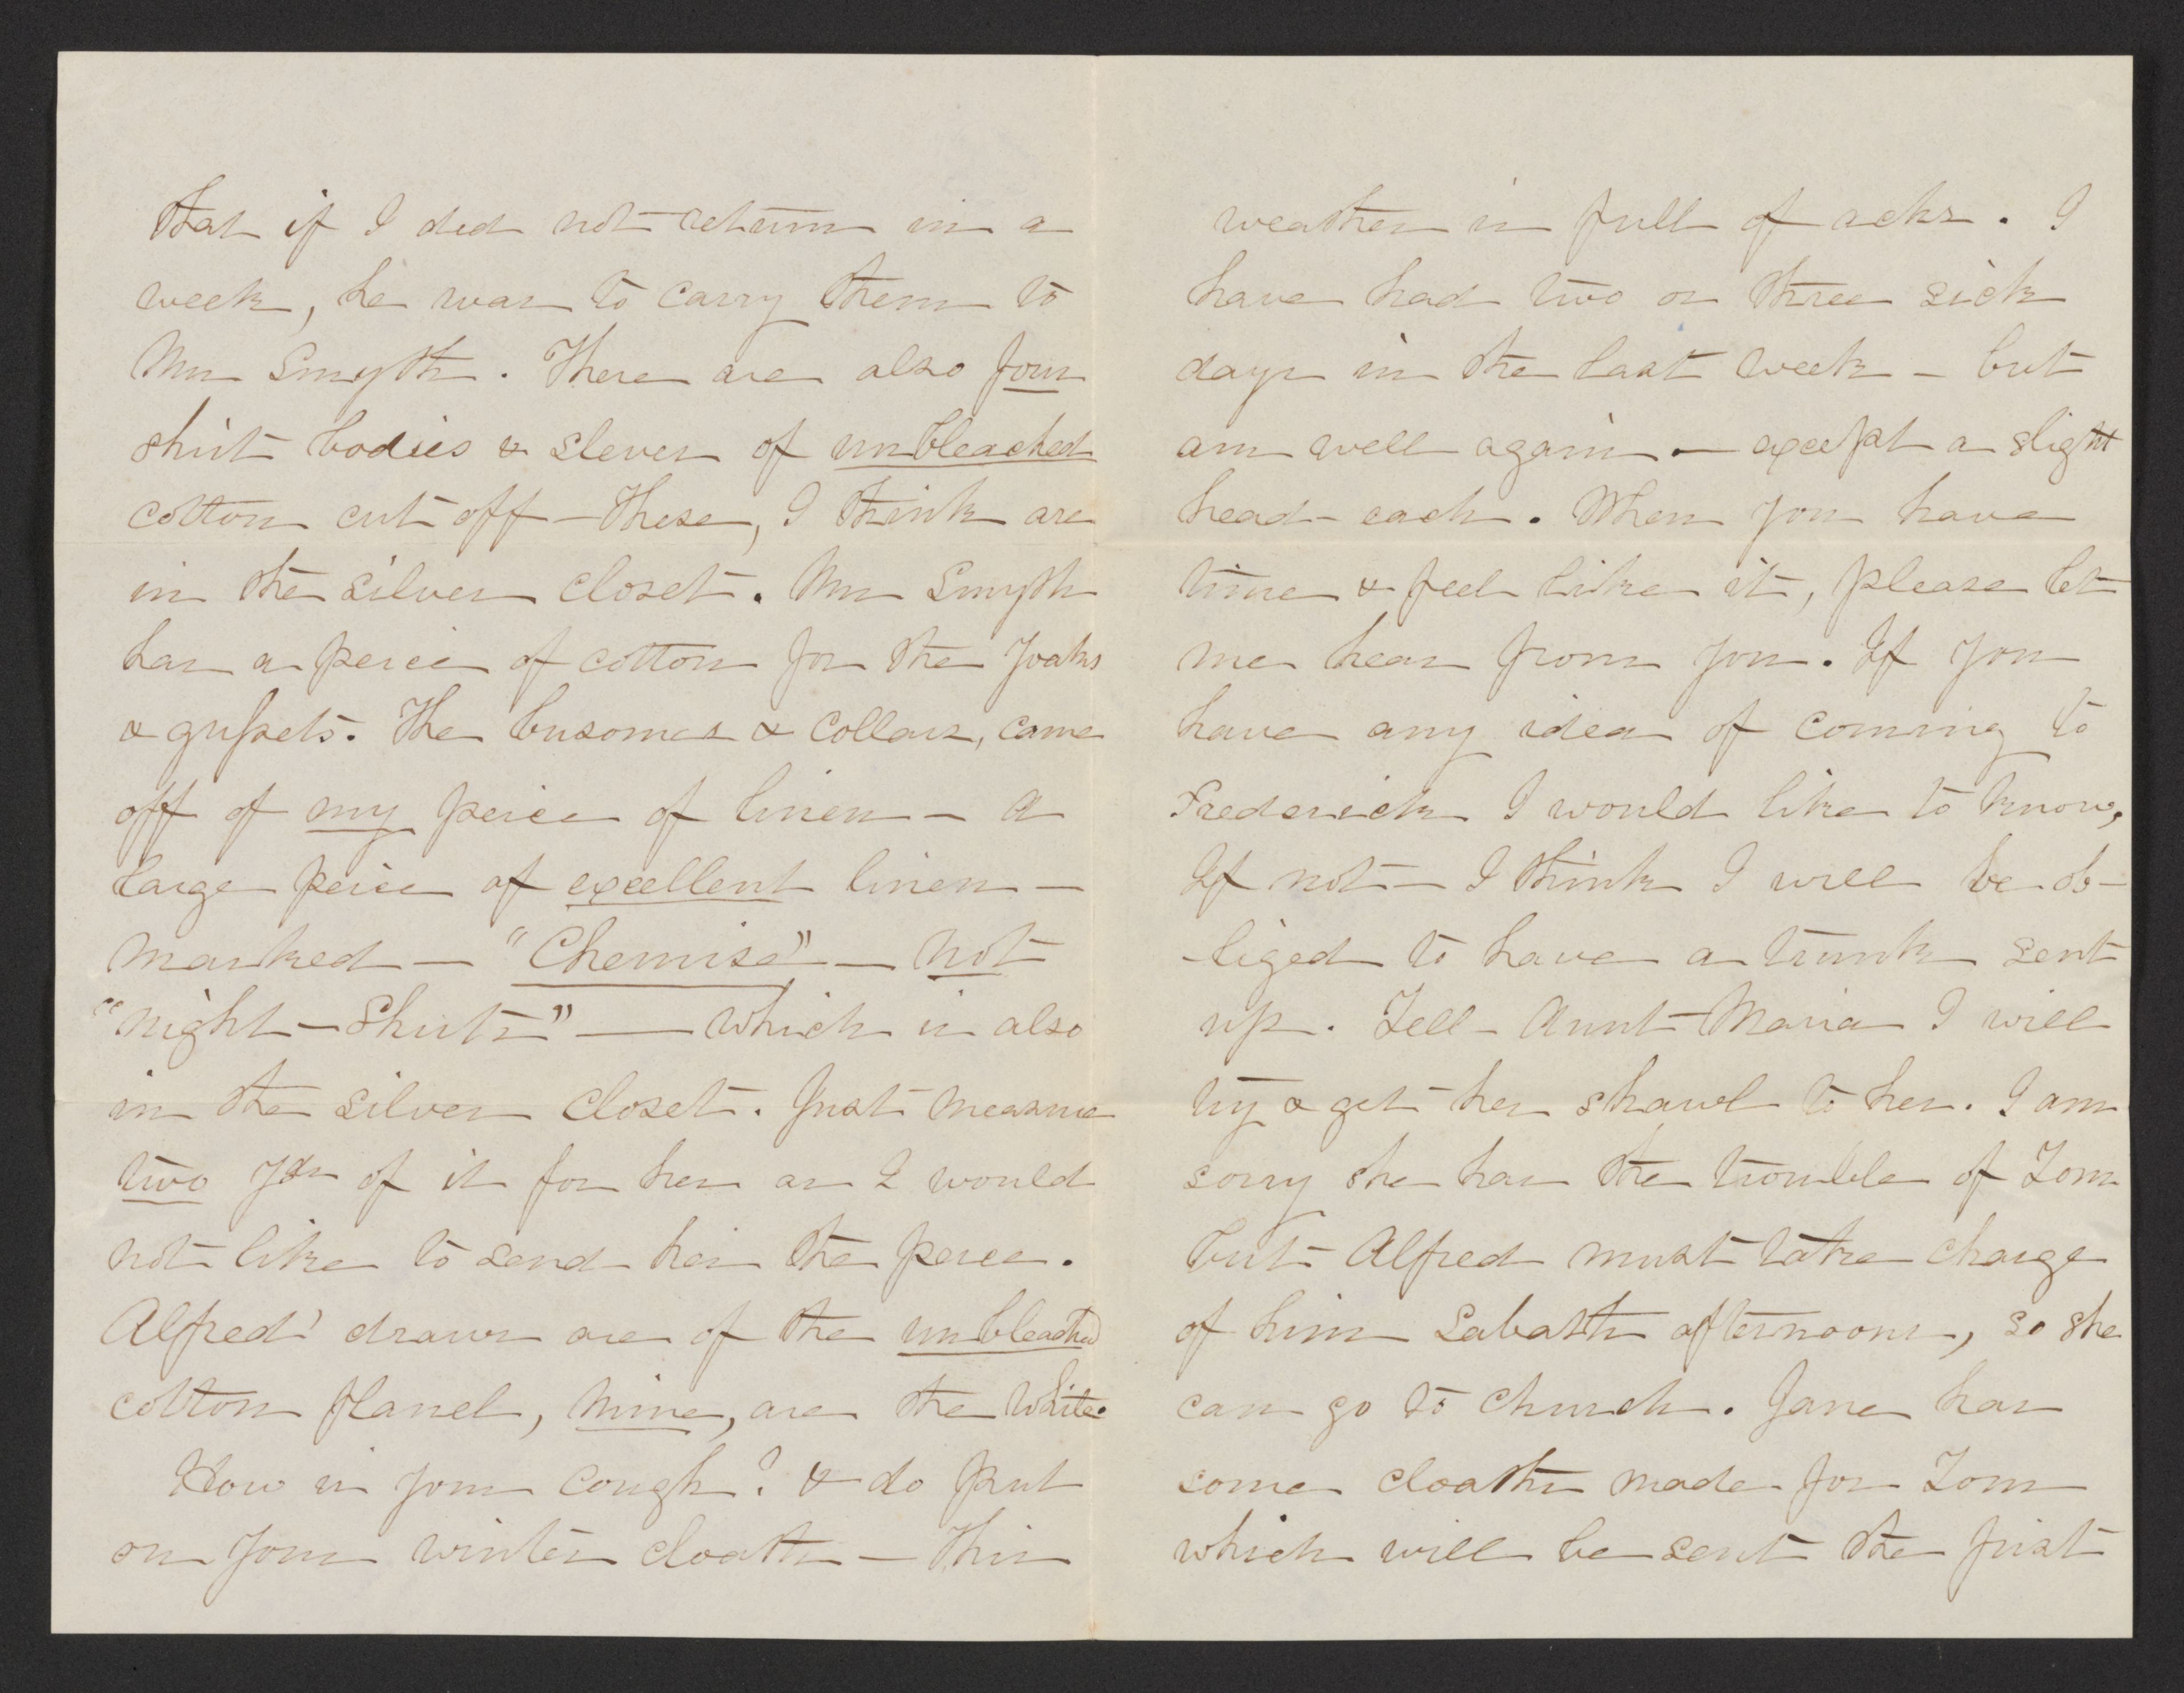 that if I did not return in a
week, he was to carry them to
Mrs Smyth. There are also four
shirt bodies & sleves of unbleached
cotton cut off - These, I think are
in the silver closet. Mrs Smyth
has a peice of cotton for the yoaks
& gussets. The busomes & collars, came
off of my peice of linen - a
large peice of excellent linen -
marked - "Chemise" - not
"night-shirts" - which is also
in the silver closet. Just measure
two yds of it for her as I would
not like to send her the peice.
Alfred' draws are of the unbleached
cotton flanel, mine, are the white.
How is your cough? & do put
on your winter cloaths - This
weather is full of acks. I
have had two or three sick
days in the last week - but
am well again - except a slight
head-each. When you have
time & feel like it, please let
me hear from you. If you
have any idea of coming to
Frederick I would like to know,
If not - I think I will be ob-
-liged to have a trunk sent
up. Tell Aunt Maria I will
try & get her shawl to her. I am
sorry she has the trouble of Tom
but Alfred must take charge
of him Sabath afternoons, so she
can go to church. Jane has
some cloaths made for Tom
which will be sent the first